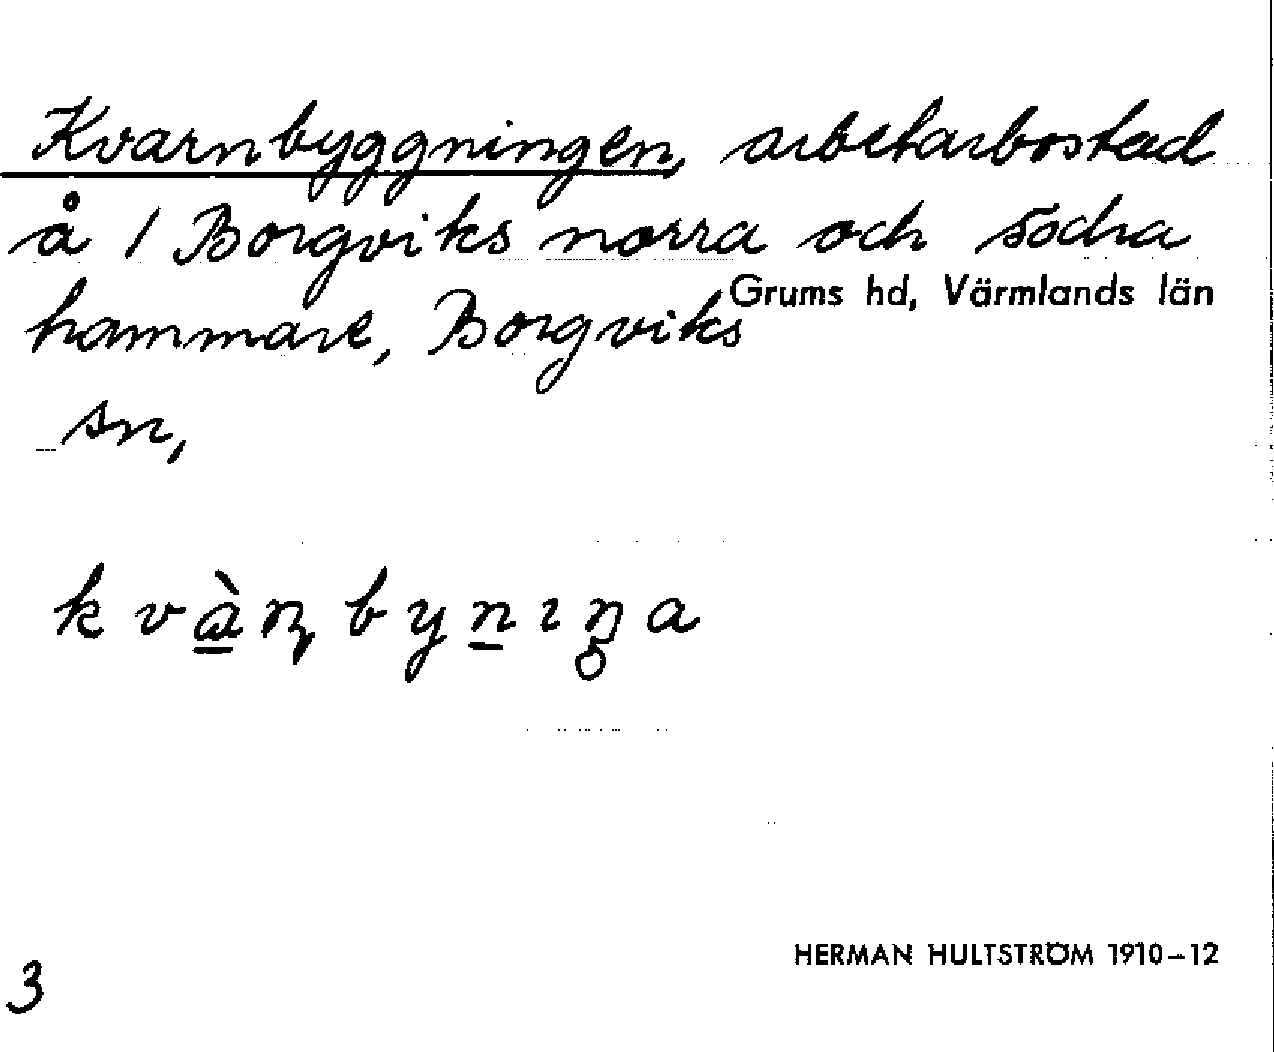 Kvarnbyggningen, arbetarbostad
å 1 Borgviks norra och södra
Grums hd, Värmlands län
hammare, Borgviks
sn,
kvàɳbyniŋa
HERMAN HULTSTRÖM 1910–12
3